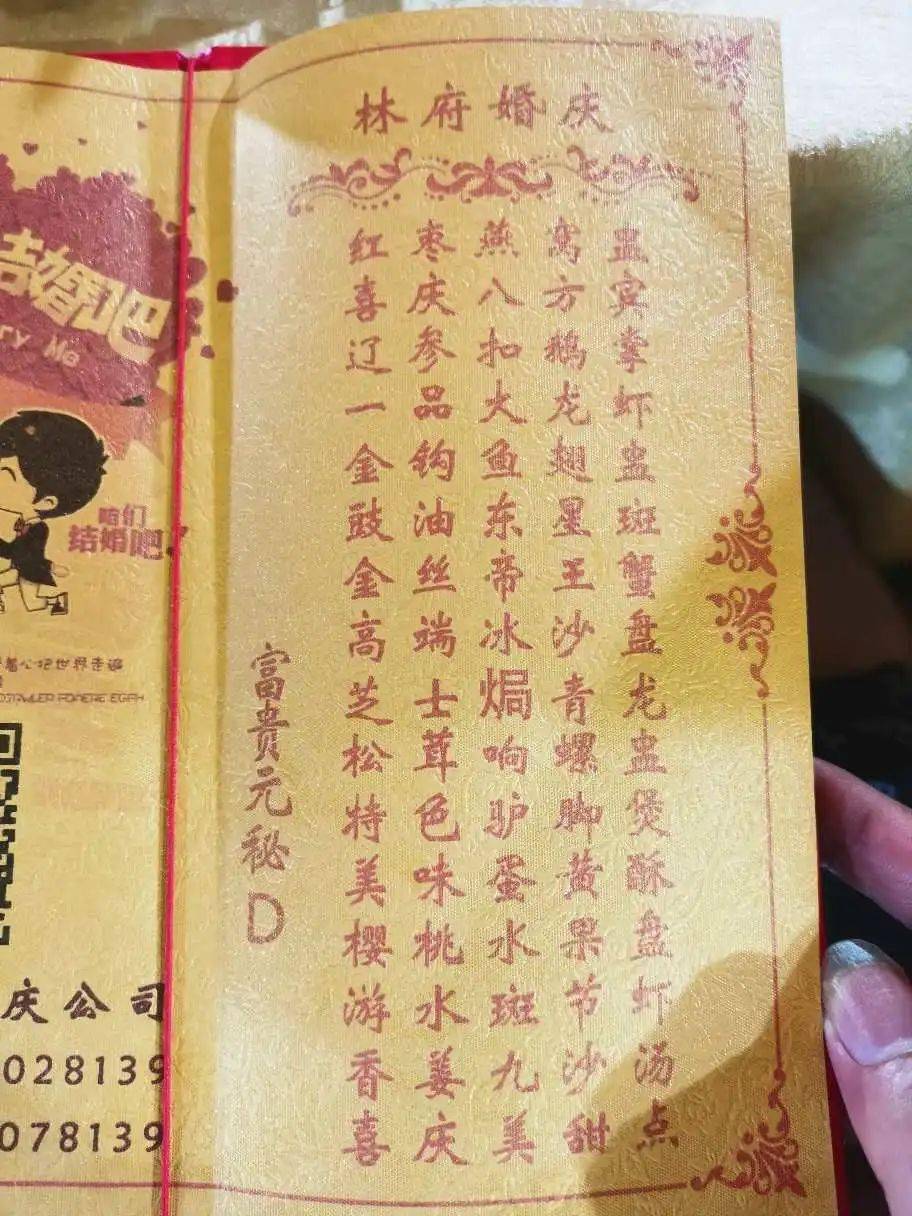 结婚吧
ry Me
咱们
结婚吧!
把世界走遍
庆公司
028139
078139
林府婚庆
红枣燕窝盅
喜庆八方宾
辽参扣鹅掌
一品大龙虾
金钩鱼翅盅
豉油东星斑
金丝帝王蟹
高端冰沙盘
芝士焗青龙
松茸响螺盅
特色驴脚煲
美味蛋黄酥
樱桃水果盘
游水斑节虾
香姜九沙汤
喜庆美甜点
富贵元秘D